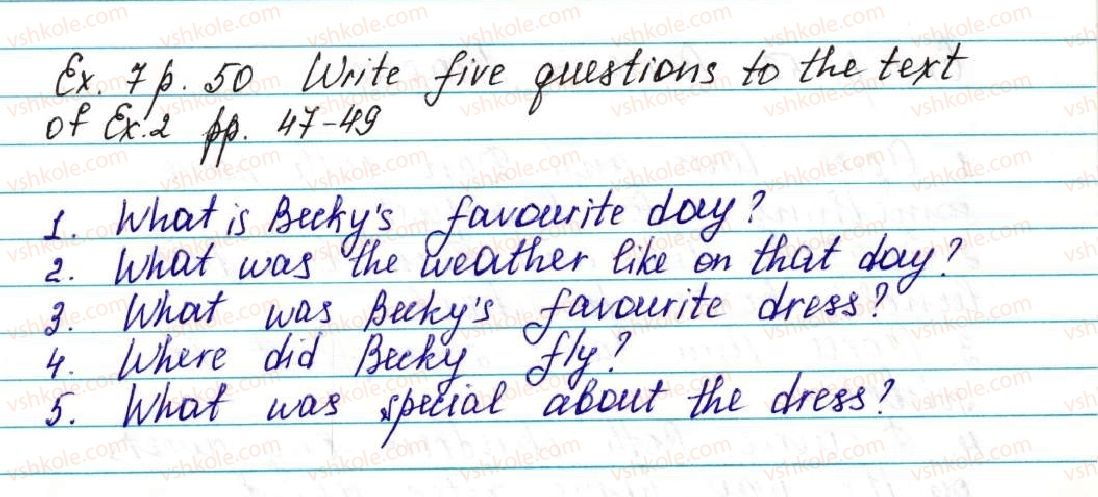 Ex. 7 p. 50 Write five questions to the text
of Ex.2 pp. 47-49
1. What is Becky's favourite day?
2. What was the weather like on that day?
3. What was Becky's favourite dress?
4. Where did Becky fly?
5. What was special about the dress?
vshkole.com